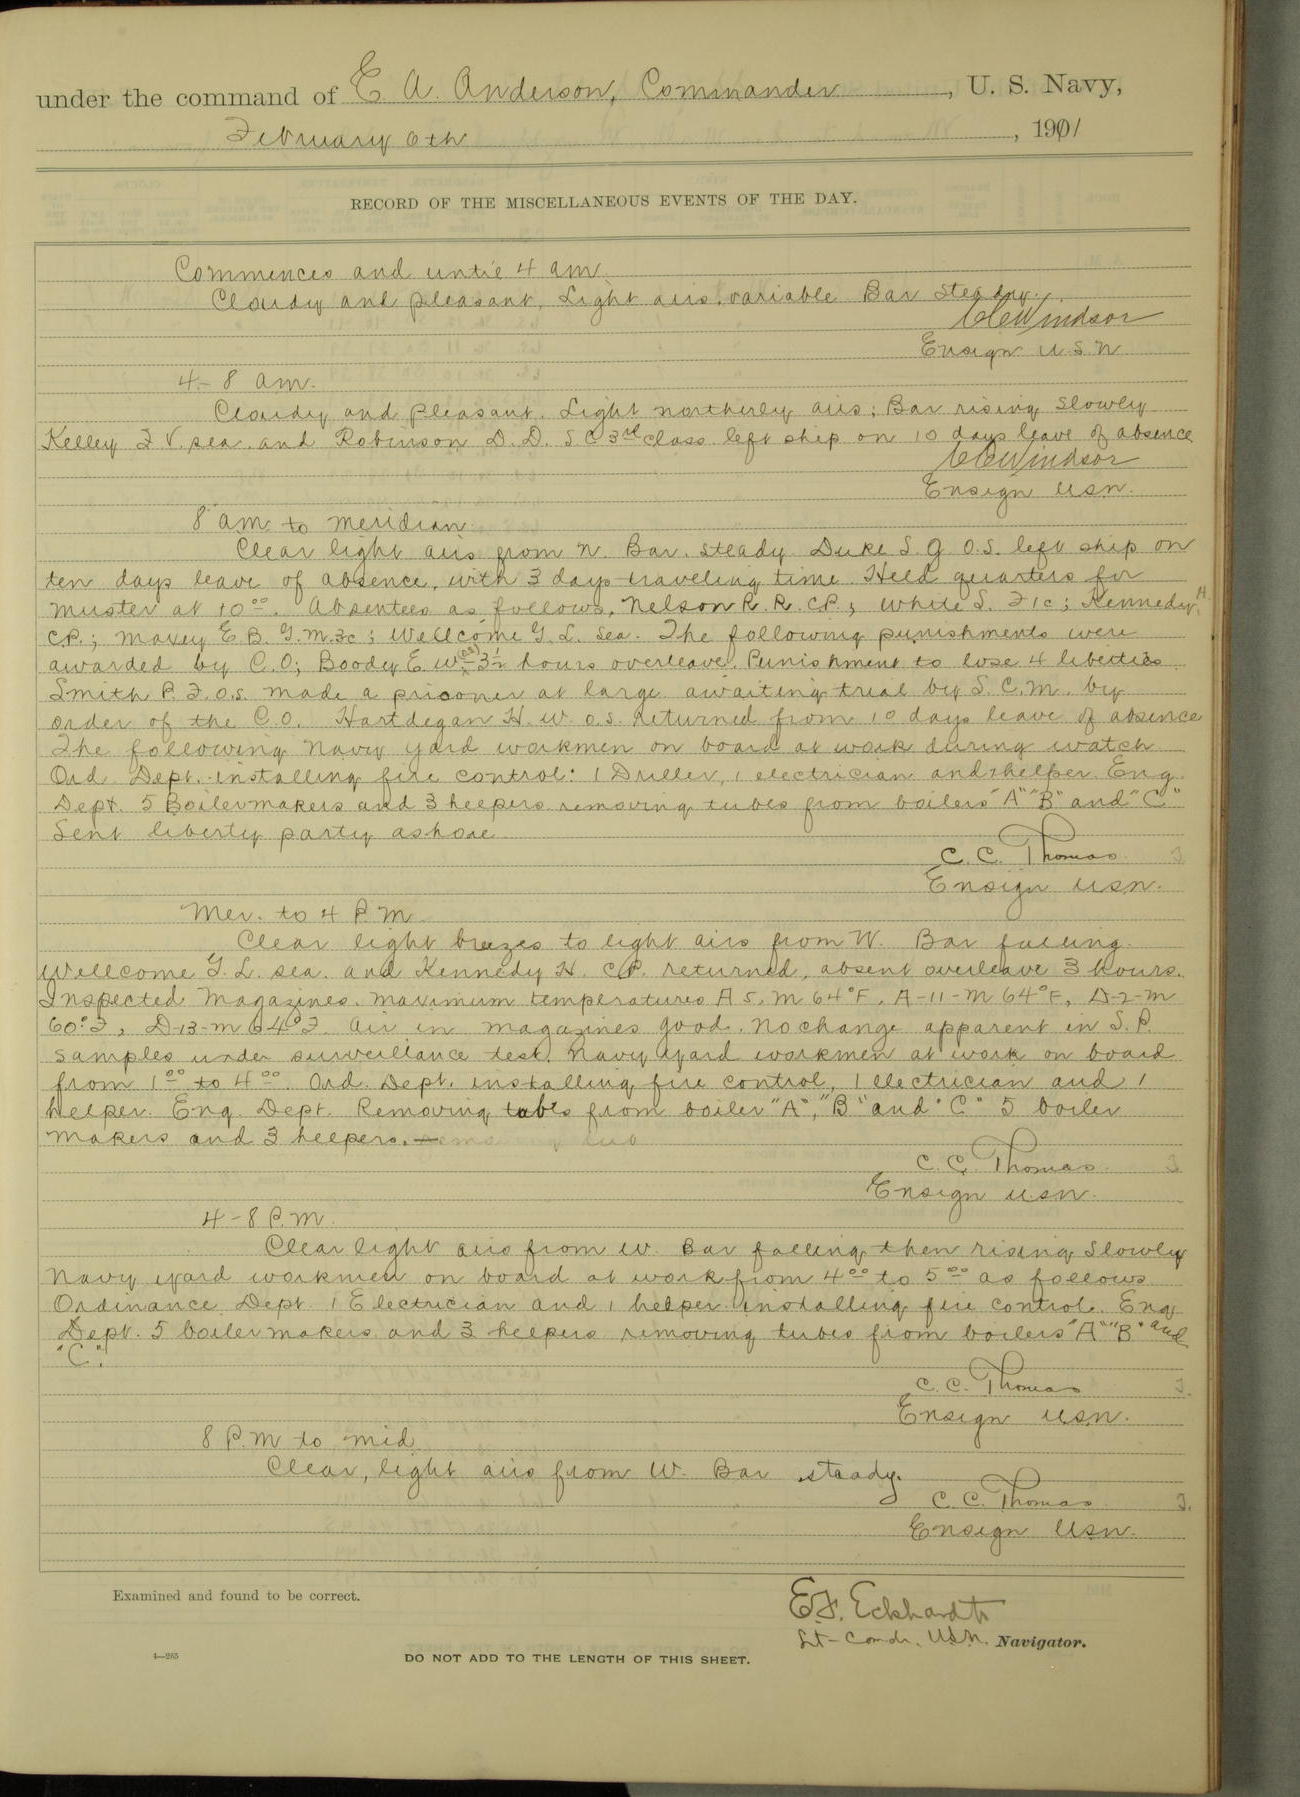 under the command of E A. Anderson, Commander, U. S. Navy,
February 6th, 1901
RECORD OF THE MISCELLANEOUS EVENTS OF THE DAY.
Commences and until 4 am
Cloudy and pleasant. Light airs, variable Bar steady.
CCWindsor
Ensign U.S.N
4- 8 am.
Cloudy and pleasant. Light northerly airs; Bar rising slowly
Kelley F V. sea. and Robinson D. D. S.C 3rd class left ship on 10 days leave of absence
CCWindsor
Ensign USN.
8 am to meridian
Clear light airs from N. Bar. steady Duke S. G O.S. left ship on
ten days leave of absence, with 3 days traveling time. Held quarters for
muster at 10 00. Absentees as follows, Nelson R. R. CP.; White S. F1c; Kennedy, H.
CP.; Maxey E B. G.M.3c; Wellcome G. L. Sea. The following punishments were
awarded by C.O; Boodey E. W (OS) 3½ hours overleave. Punishment to lose 4 liberties
Smith P. F. O.S. made a prisoner at large awaiting trial by S. C.M. by
order of the C.O. Hartdegan H. W. O.S. returned from 10 days leave of absence
The following Navy yard workmen on board at work during watch
Ord Dept. installing fire control: 1 Driller, 1 electrician and helper Eng.
Dept. 5 Boilermakers and 3 helpers removing tubes from boilers "A" "B" and "C"
Sent liberty party ashore
C. C. Thomas
Ensign USN.
Mer. to 4 P.M
Clear light breezes to light airs from W. Bar falling.
Wellcome G. L. sea. and Kennedy H. CP. returned, absent overleave 3 hours.
Inspected Magazines. maximum temperatures A 5. M 64°F, A-11-M 64°F, D-2-M
60°F, D-13-M 64°F. Air in magazines good. No change apparent in S. P.
samples under surveillance test. Navy Yard workmen at work on board
from 1 00 to 4 00. Ord. Dept. installing fire control, 1 electrician and 1
helper. Eng. Dept. Removing tubes from boiler "A", "B" and "C" 5 boiler
makers and 3 helpers.—
C. C. Thomas
Ensign USN.
4-8 P.M.
Clear light airs from W. Bar falling then rising slowly
Navy yard workmen on board at work from 4 00 to 5 00 as follows
Ordinance Dept. 1 Electrician and 1 helper installing fire control. Eng
Dept. 5 boilermakers and 3 helpers removing tubes from boilers "A" "B" and
"C".
C. C. Thomas
Ensign USN.
8 P.M to mid
Clear, light airs from W. Bar steady.
C. C. Thomas
Ensign USN.
Examined and found to be correct.
E.F. Eckhardt
Lt-Comdr. USN. Navigator.
4—265
DO NOT ADD TO THE LENGTH OF THIS SHEET.